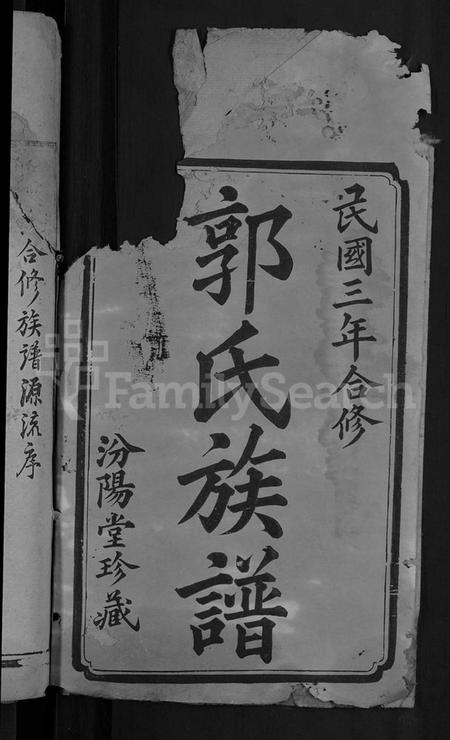 民國三年合修
郭氏族譜
汾陽堂珍藏
合修族譜源流序
FamilySearch